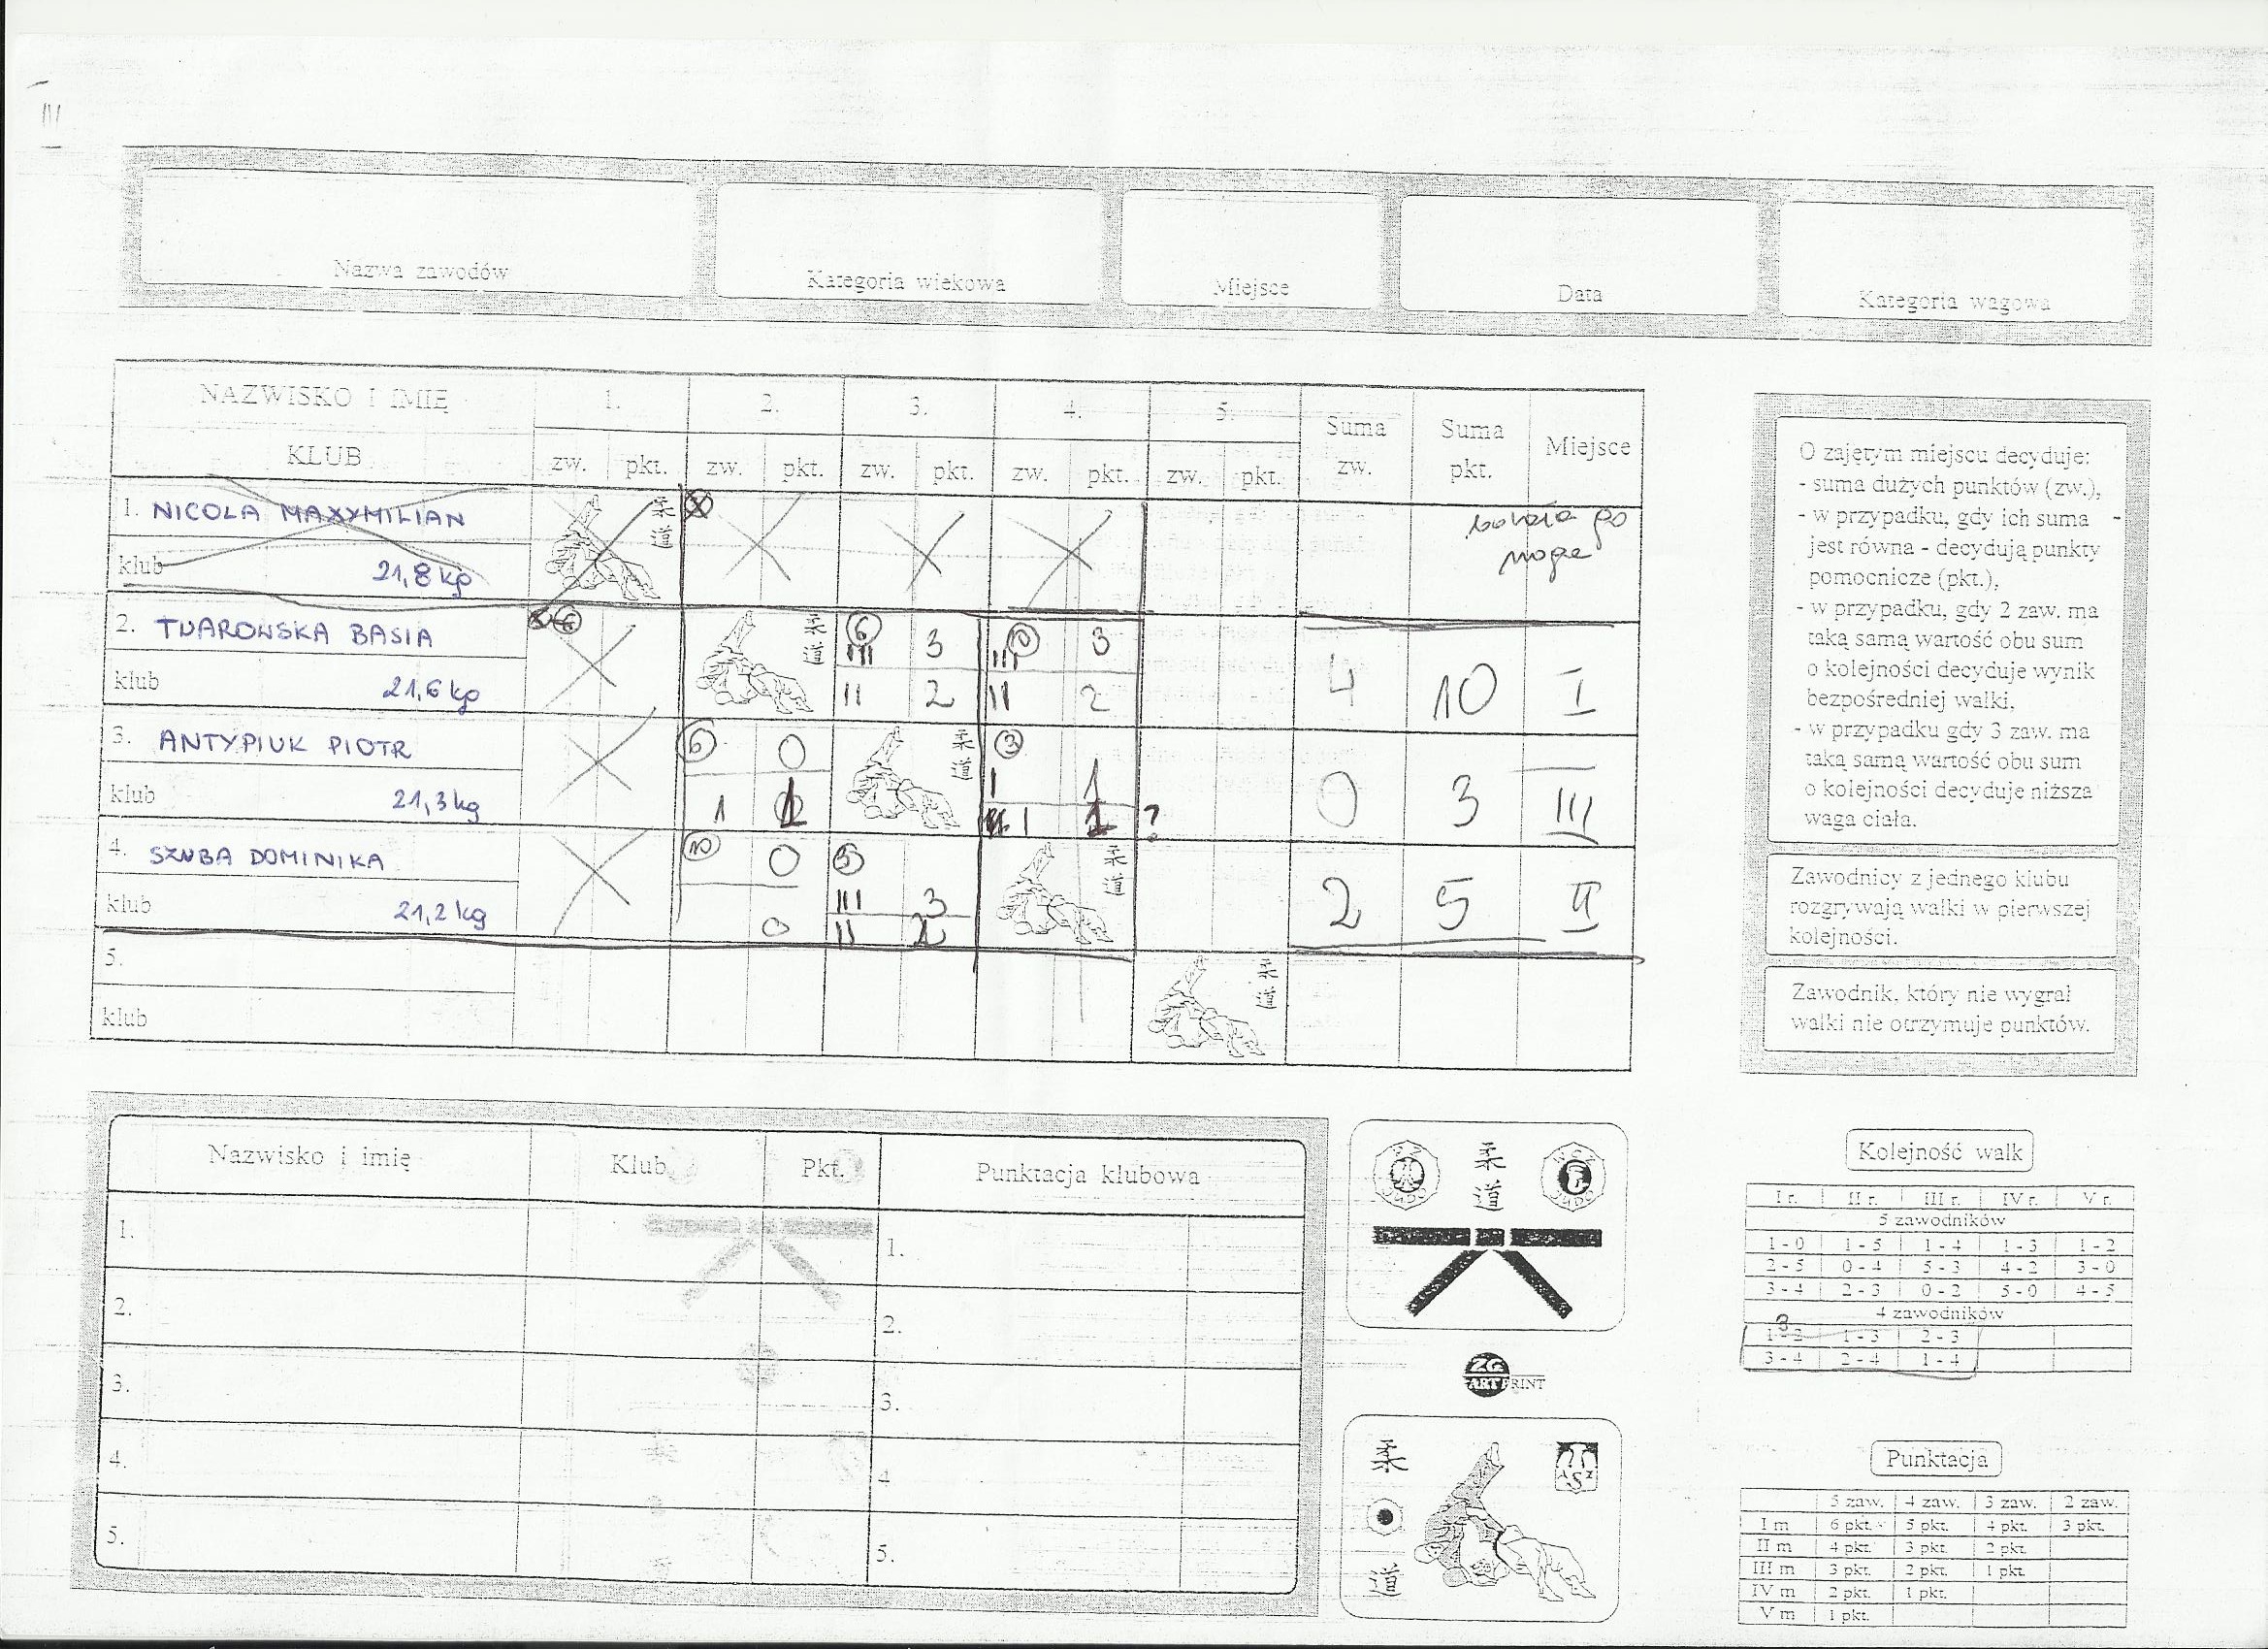 III
Nazwa zawodów
Kategoria wiekowa
Miejsce
Data
Kategoria wagowa
NAZWISKO I IMIĘ
KLUB
1. 2. 3. 4. 5.
zw. pkt. zw. pkt. zw. pkt. zw. pkt. zw. pkt.
Suma zw.
Suma pkt.
Miejsce
1. NICOLA MAXYMILIAN
klub 21,8 kg
2. TWAROWSKA BASIA
6 3 10 3
klub 21,6 kg
II 2 II 2
4 10 I
3. ANTYPIUK PIOTR
6 0 3
klub 21,3 kg
1 1 I 1
I 1 ?
0 3 III
4. SZUBA DOMINIKA
10 0 3
klub 21,2 kg
0 III 3
II 2
2 5 II
5.
klub
O zajętym miejscu decyduje:
- suma dużych punktów (zw.),
- w przypadku, gdy ich suma -
jest równa - decydują punkty
pomocnicze (pkt.),
- w przypadku, gdy 2 zaw. ma
taką samą wartość obu sum
o kolejności decyduje wynik
bezpośredniej walki,
- w przypadku gdy 3 zaw. ma
taką samą wartość obu sum
o kolejności decyduje niższa
waga ciała.
Zawodnicy z jednego klubu
rozgrywają walki w pierwszej
kolejności.
Zawodnik, który nie wygrał
walki nie otrzymuje punktów.
Nazwisko i imię Klub Pkt. Punktacja klubowa
1. 1.
2. 2.
3. 3.
4. 4
5. 5.
柔
道
ZG
ART PRINT
柔
道
AZS
Kolejność walk
I r. II r. III r. IV r. V r.
5 zawodników
1 - 0 1 - 5 1 - 4 1 - 3 1 - 2
2 - 5 0 - 4 5 - 3 4 - 2 3 - 0
3 - 4 2 - 3 0 - 2 5 - 0 4 - 5
4 zawodników
3
1 - 2 1 - 3 2 - 3
3 - 4 2 - 4 1 - 4
Punktacja
5 zaw. 4 zaw. 3 zaw. 2 zaw.
I m 6 pkt. 5 pkt. 4 pkt. 3 pkt.
II m 4 pkt. 3 pkt. 2 pkt.
III m 3 pkt. 2 pkt. 1 pkt.
IV m 2 pkt. 1 pkt.
V m 1 pkt.